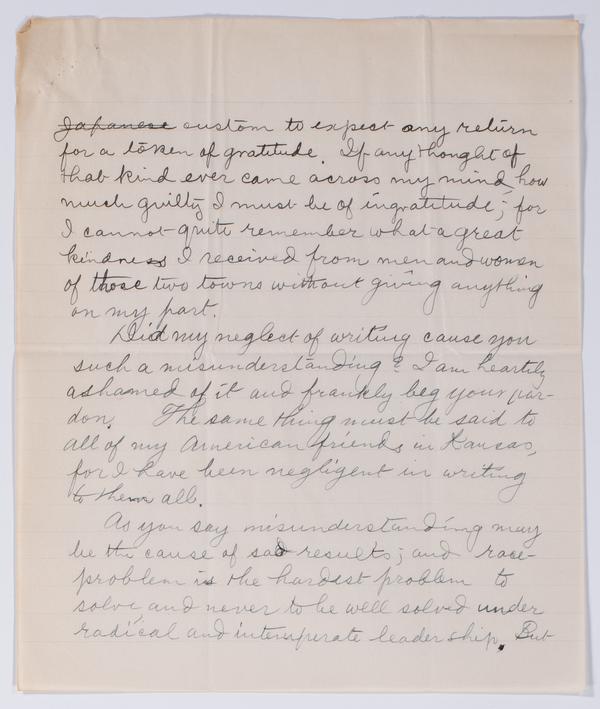 Japanese custom to expect any return
for a token of gratitude. If any thought of
that kind ever came across my mind, how
much guilty I must be of ingratitude; for
I cannot quite remember what a great
kindness I received from men and women
of those two towns without giving anything
on my part.
Did my neglect of writing cause you
such a misunderstanding? I am heartily
ashamed of it and frankly beg your par-
don. The same thing must be said to
all of my American friends in Kansas,
for I have been negligent in writing
to them all.
As you say misunderstanding may
be the cause of sad results; and race-
problem is the hardest problem to
solve and never to be well solved under
radical and intemperate leadership. But